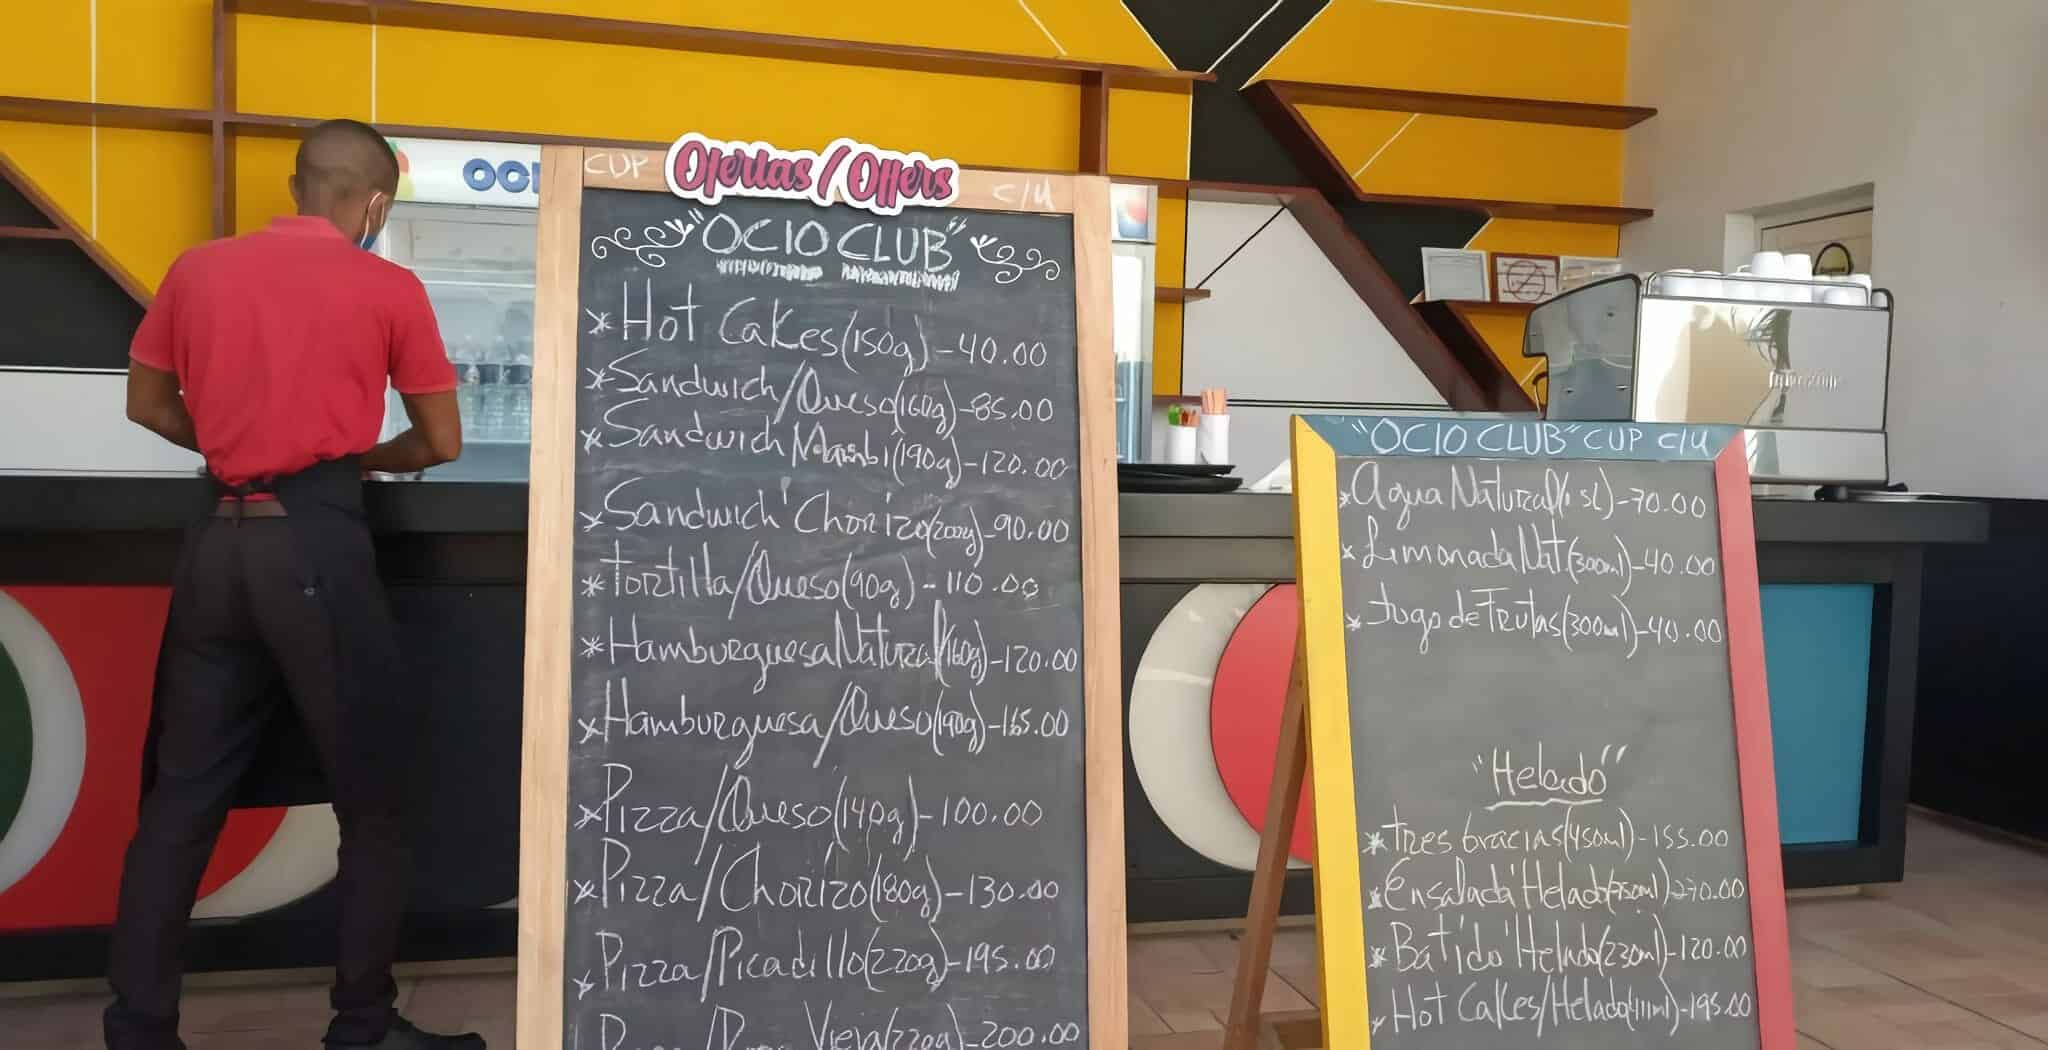 OCI
CUP
Ofertas/Offers
C/U
"OCIO CLUB"
* Hot Cakes (150g) - 40.00
* Sandwich/Queso (160g) - 85.00
* Sandwich Mambi (190g) - 120.00
* Sandwich Chorizo (200g) - 90.00
* Tortilla/Queso (90g) - 110.00
* Hamburguesa Natural (160g) - 120.00
* Hamburguesa/Queso (190g) - 165.00
* Pizza/Queso (140g) - 100.00
* Pizza/Chorizo (180g) - 130.00
* Pizza/Picadillo (220g) - 195.00
Vieja (220g) - 200.00
"OCIO CLUB" CUP C/U
* Agua Natural (1.5L) - 70.00
* Limonada Nat. (300ml) - 40.00
* Jugo de Frutas (300ml) - 40.00
"Helado"
* Tres Gracias (450ml) - 155.00
* Ensalada Helado (750ml) 270.00
* Batido Helado (230ml) - 120.00
* Hot Cakes/Helado (411ml) - 195.00